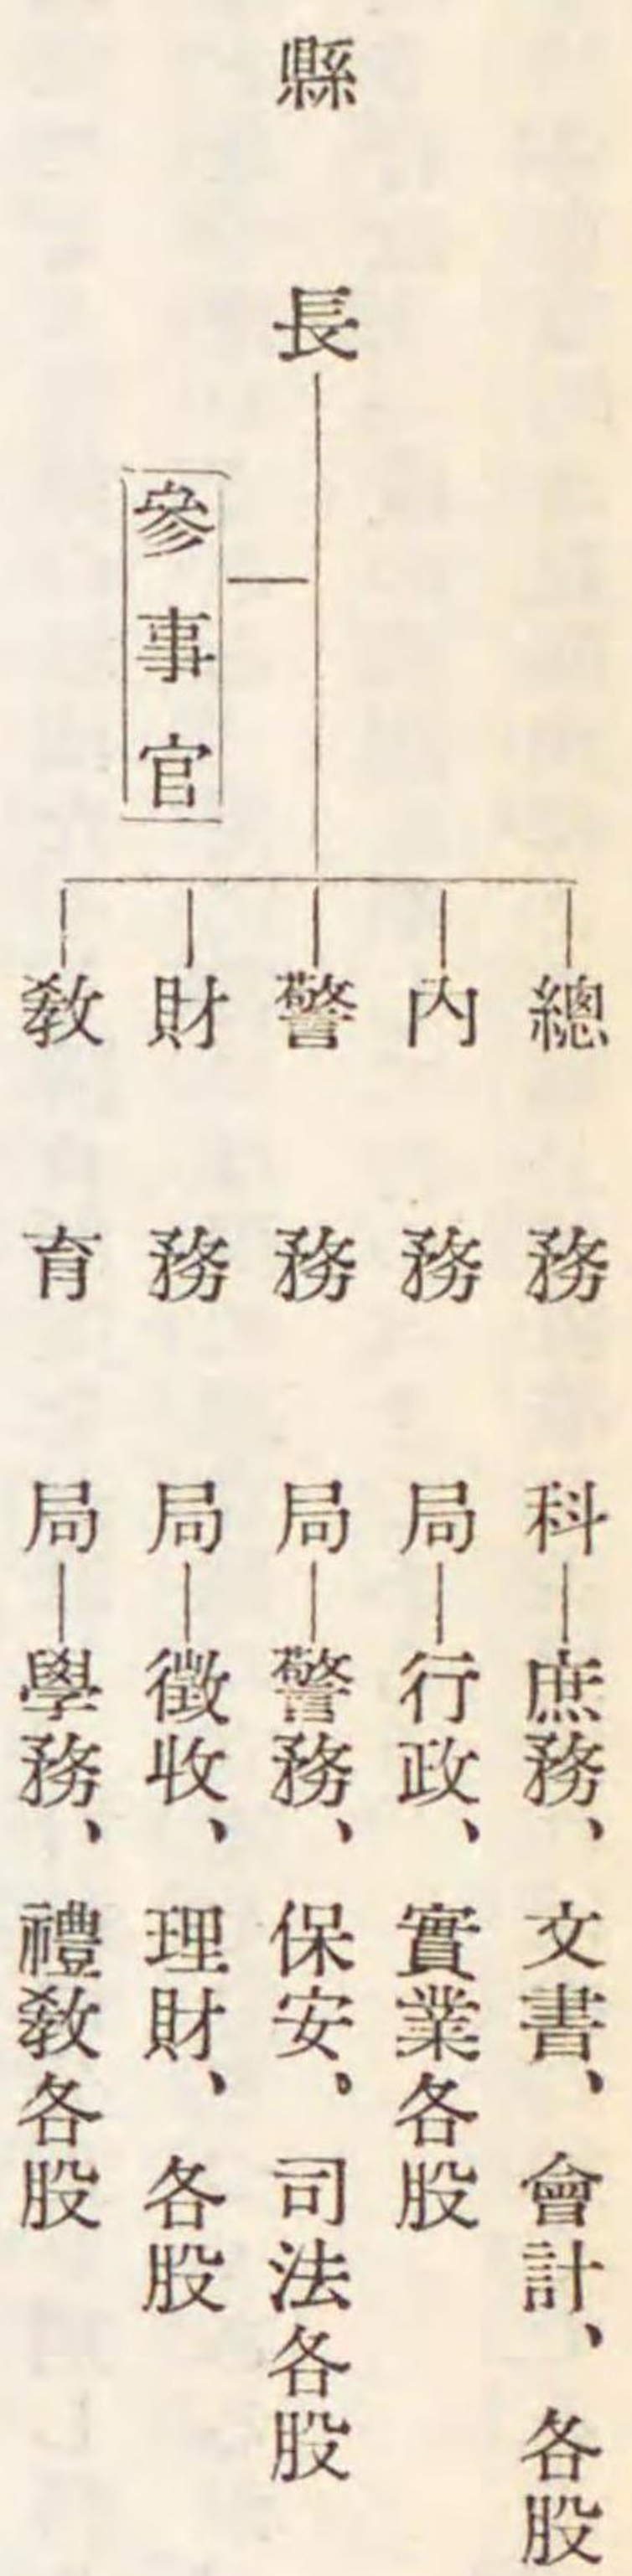 縣長
參事官
總務科―庶務、文書、會計、各股
內務局―行政、實業各股
警務局―警務、保安、司法各股
財務局―徵收、理財、各股
敎育局―學務、禮敎各股